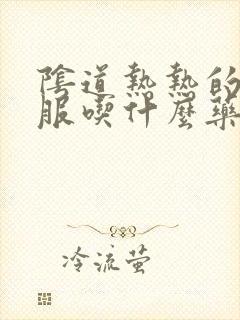 陰道熱熱的
服喫什麼藥
冷流萤